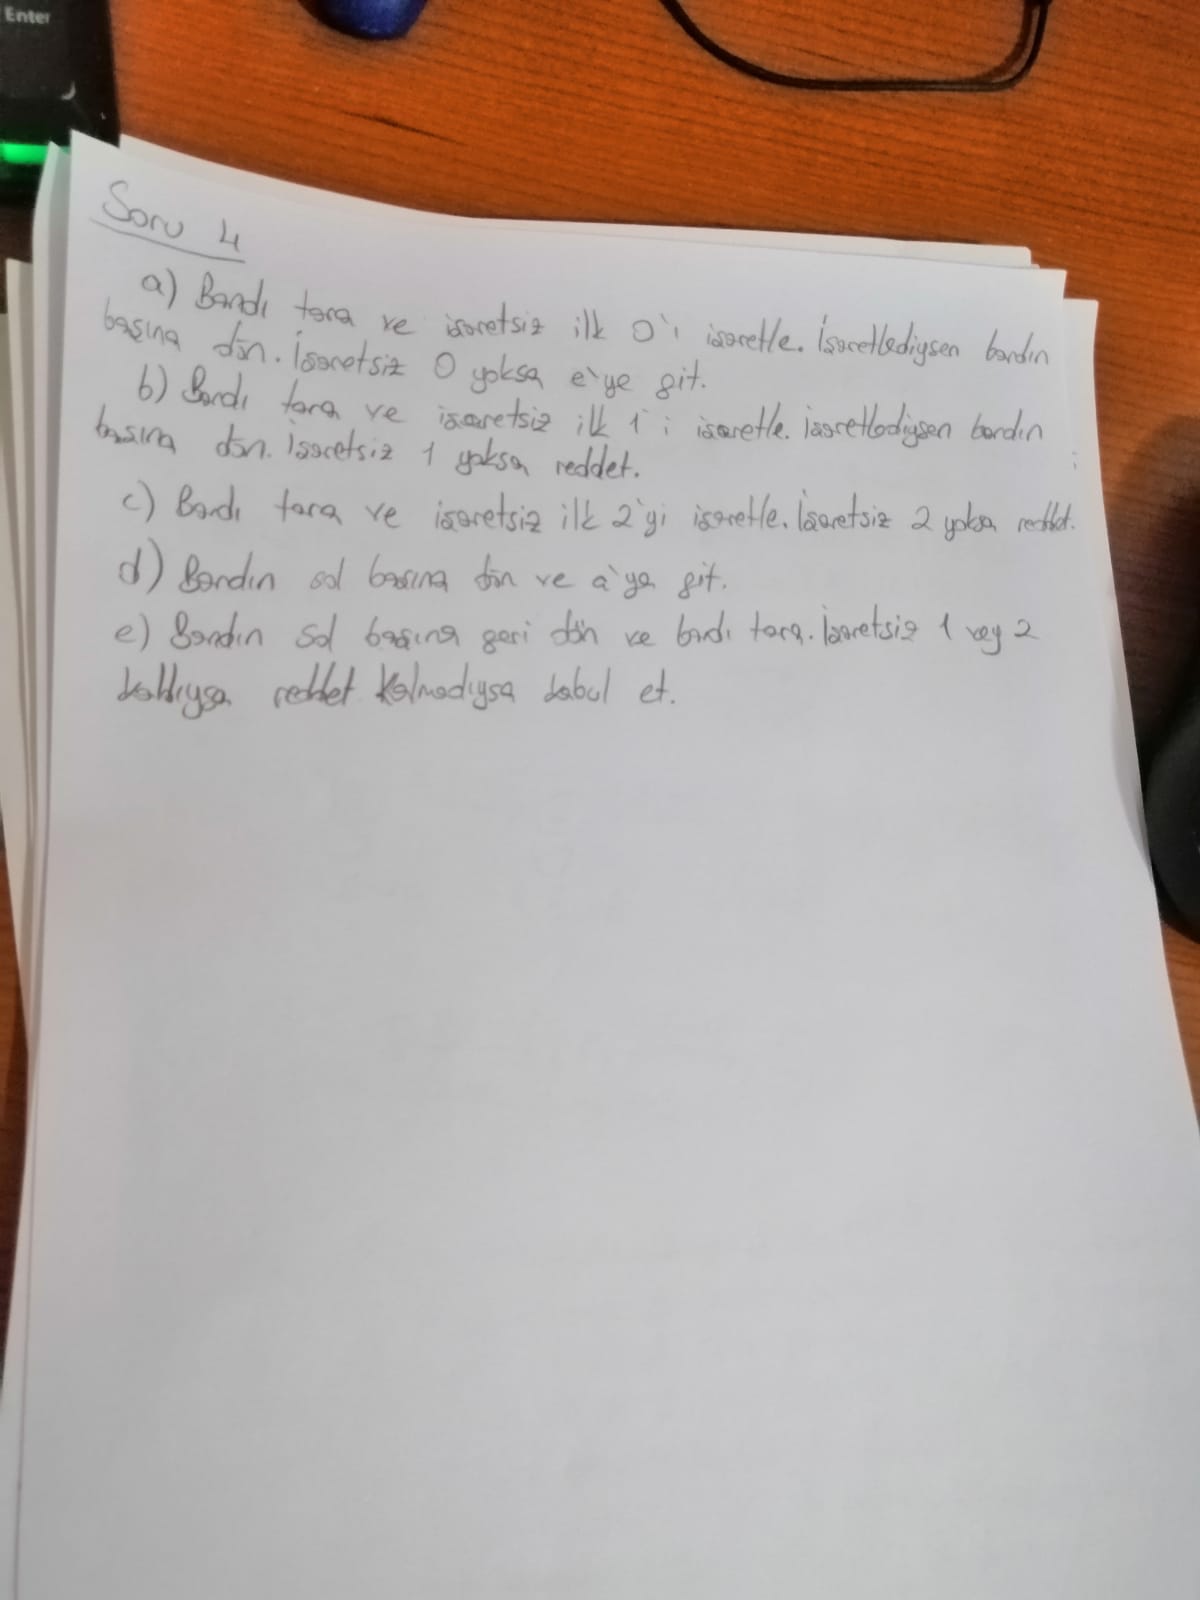 Enter
Soru 4
a) Bandı tara ve işaretsiz ilk 0'ı işaretle. İşaretlediysen bandın
başına dön. İşaretsiz 0 yoksa e'ye git.
b) Bandı tara ve işaretsiz ilk 1'i işaretle. İşaretlediysen bandın
başına dön. İşaretsiz 1 yoksa reddet.
c) Bandı tara ve işaretsiz ilk 2'yi işaretle. İşaretsiz 2 yoksa reddet.
d) Bandın sol başına dön ve a'ya git.
e) Bandın sol başına geri dön ve bandı tara. İşaretsiz 1 vey 2
kaldıysa reddet kalmadıysa kabul et.